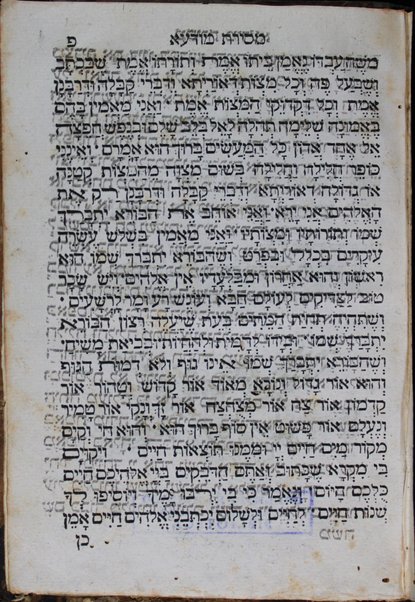 מסירת מודעא פ
משה עבדו נאמן ביתו אמת ותורתו אמת שבכתב
ושבעל פה וכל מצות דאוריתא ודברי קבלה ודרבנן
אמת וכל דקדוקי המצות אמת ואני מאמין בהם
באמונה שלימה תהלה לאל בלב שלם ובנפש חפצה
אל אחד אדון כל המעשים ברוך הוא אמרים ואינני
כופר חלילה וחלילה בשום מצוה מהמצות קטנה
או גדולה דאוריתא ודברי קבלה ודרבנן רק את
האלהים אני ירא ואני אוהב את הבורא יתברך
שמו ותורותיו ומצותיו ואני מאמין בשלש עשרה
עיקרים בכלל ובפרט ושהבורא יתברך שמו הוא
ראשון והוא אחרון ומבלעדיו אין אלהים ויש שכר
טוב לצדיקים לעולם הבא ועונש רע ומר לרשעים
ושתחיה תחית המתים בעת שיעלה רצון הבורא
יתברך שמו ובידו להמית ולהחיות ובביאת משיח
ושהבורא יתברך שמו אינו גוף ולא דמות הגוף
והוא אור גדול ונורא מאוד אור קדוש וטהור אור
קדמון אור צח אור מצוחצח אור זך ונקי אור טמיר
ונעלם אור פשוט אין סוף ברוך הוא והוא חי וקים
מקור מים חיים וממנו תוצאות חיים ויקוים
בי מקרא שכתוב ואתם הדבקים ביי אלהיכם חיים
כלכם היום ונאמר כי בי ירבו ימיך ויוסיפו לך
שנות חיים לחיים ולשלום יכתבני אלהים חיים אמן
כן